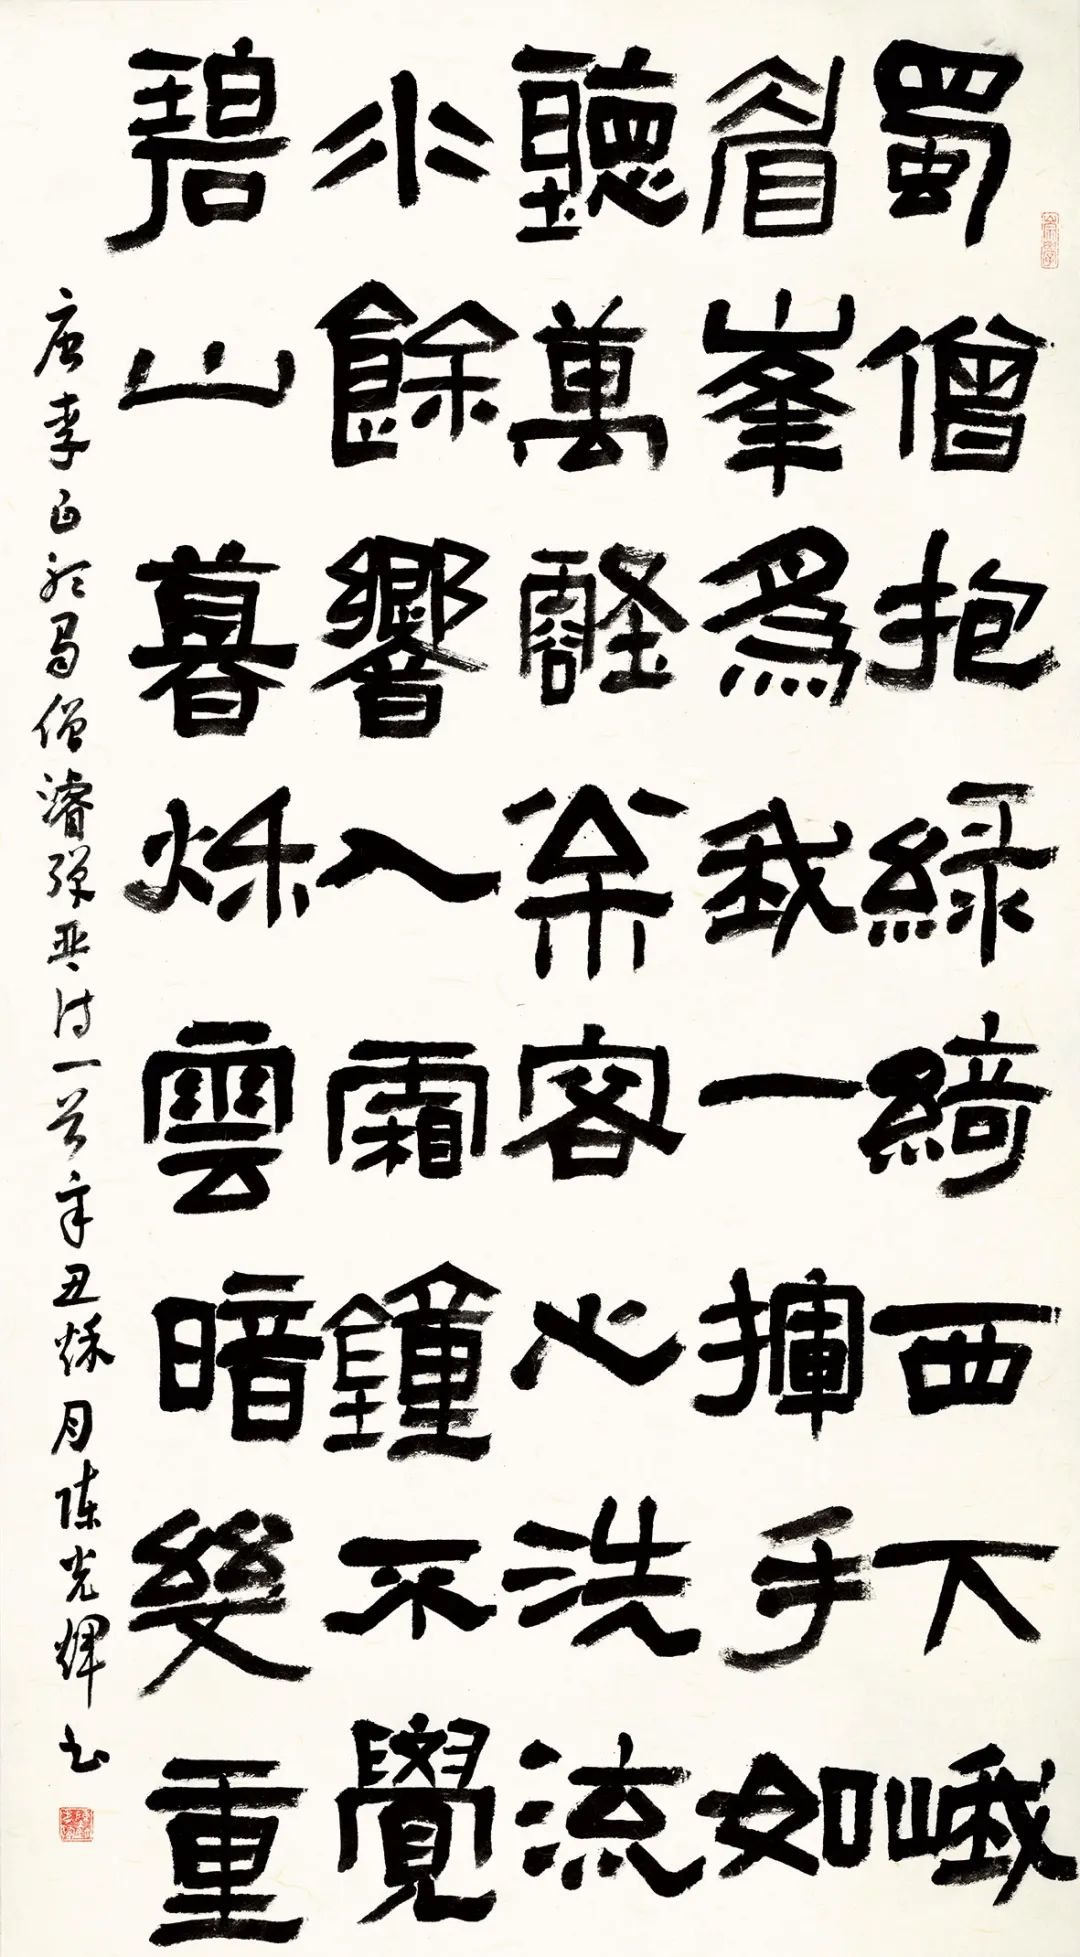 蜀僧抱綠綺西下峨
眉峯爲我一揮手如
聽萬壑枀客心洗流
水餘響入霜鐘不覺
碧山暮秌雲暗幾重
唐李白聽蜀僧濬彈琴詩一首辛丑秌月陳光輝書